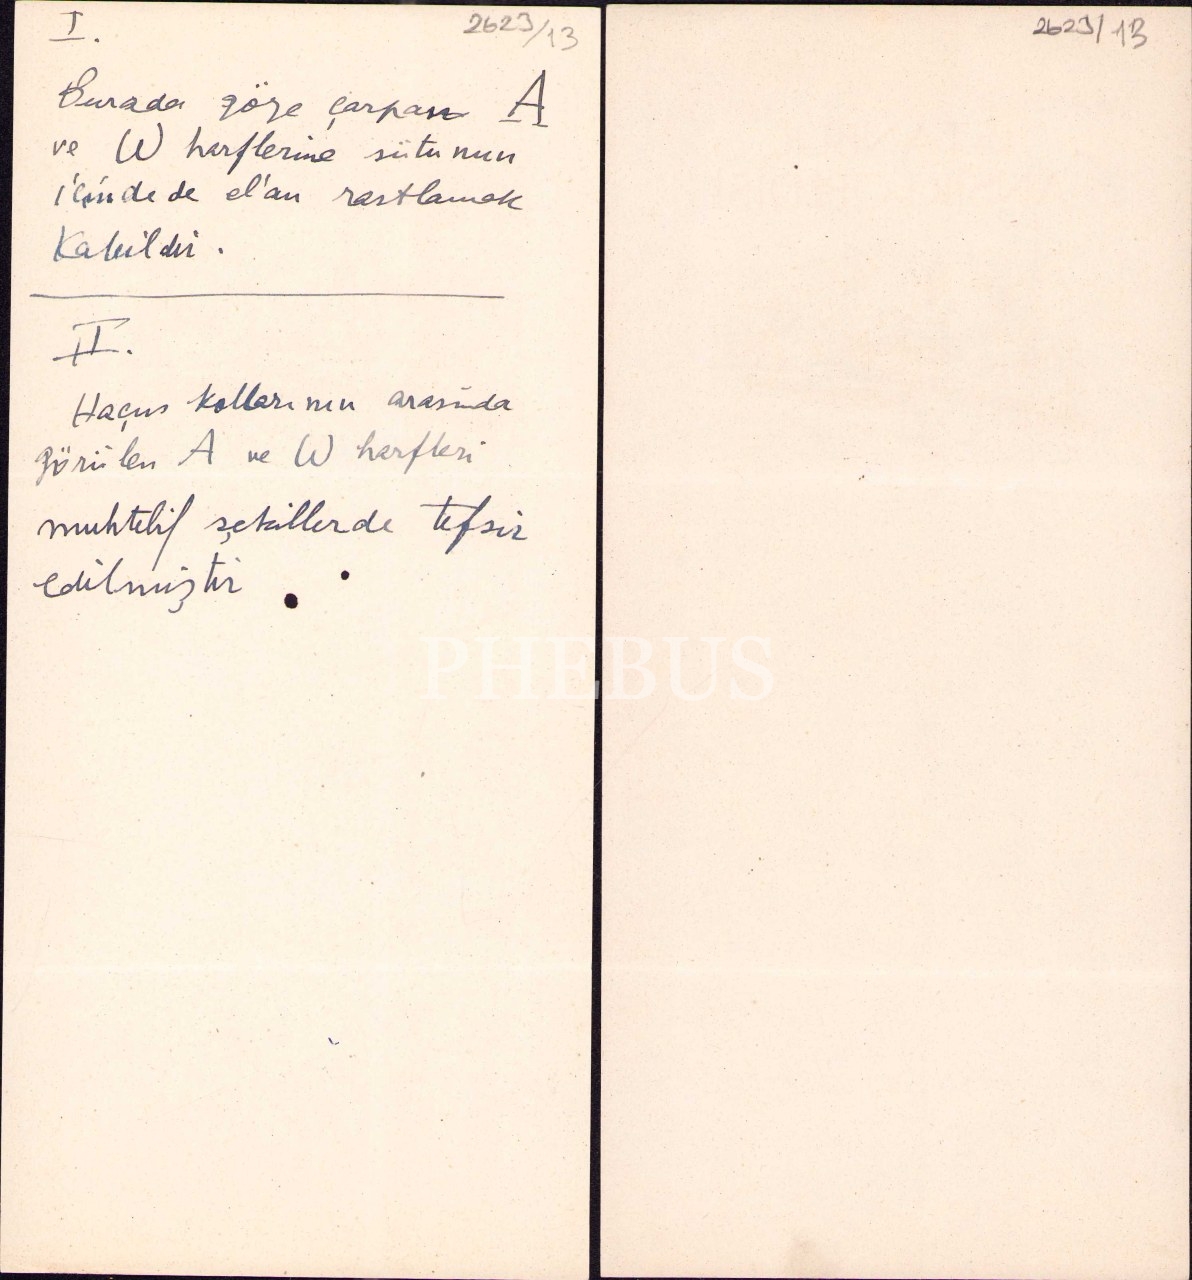 I.
2623/13
Burada göze çarpan A
ve W harflerine sütunun
içinde de el'an rastlamak
Kabildir.
II.
Haçın kollarının arasında
görülen A ve W harfleri
muhtelif şekillerde tefsir
edilmiştir.
2623/13
PHEBUS